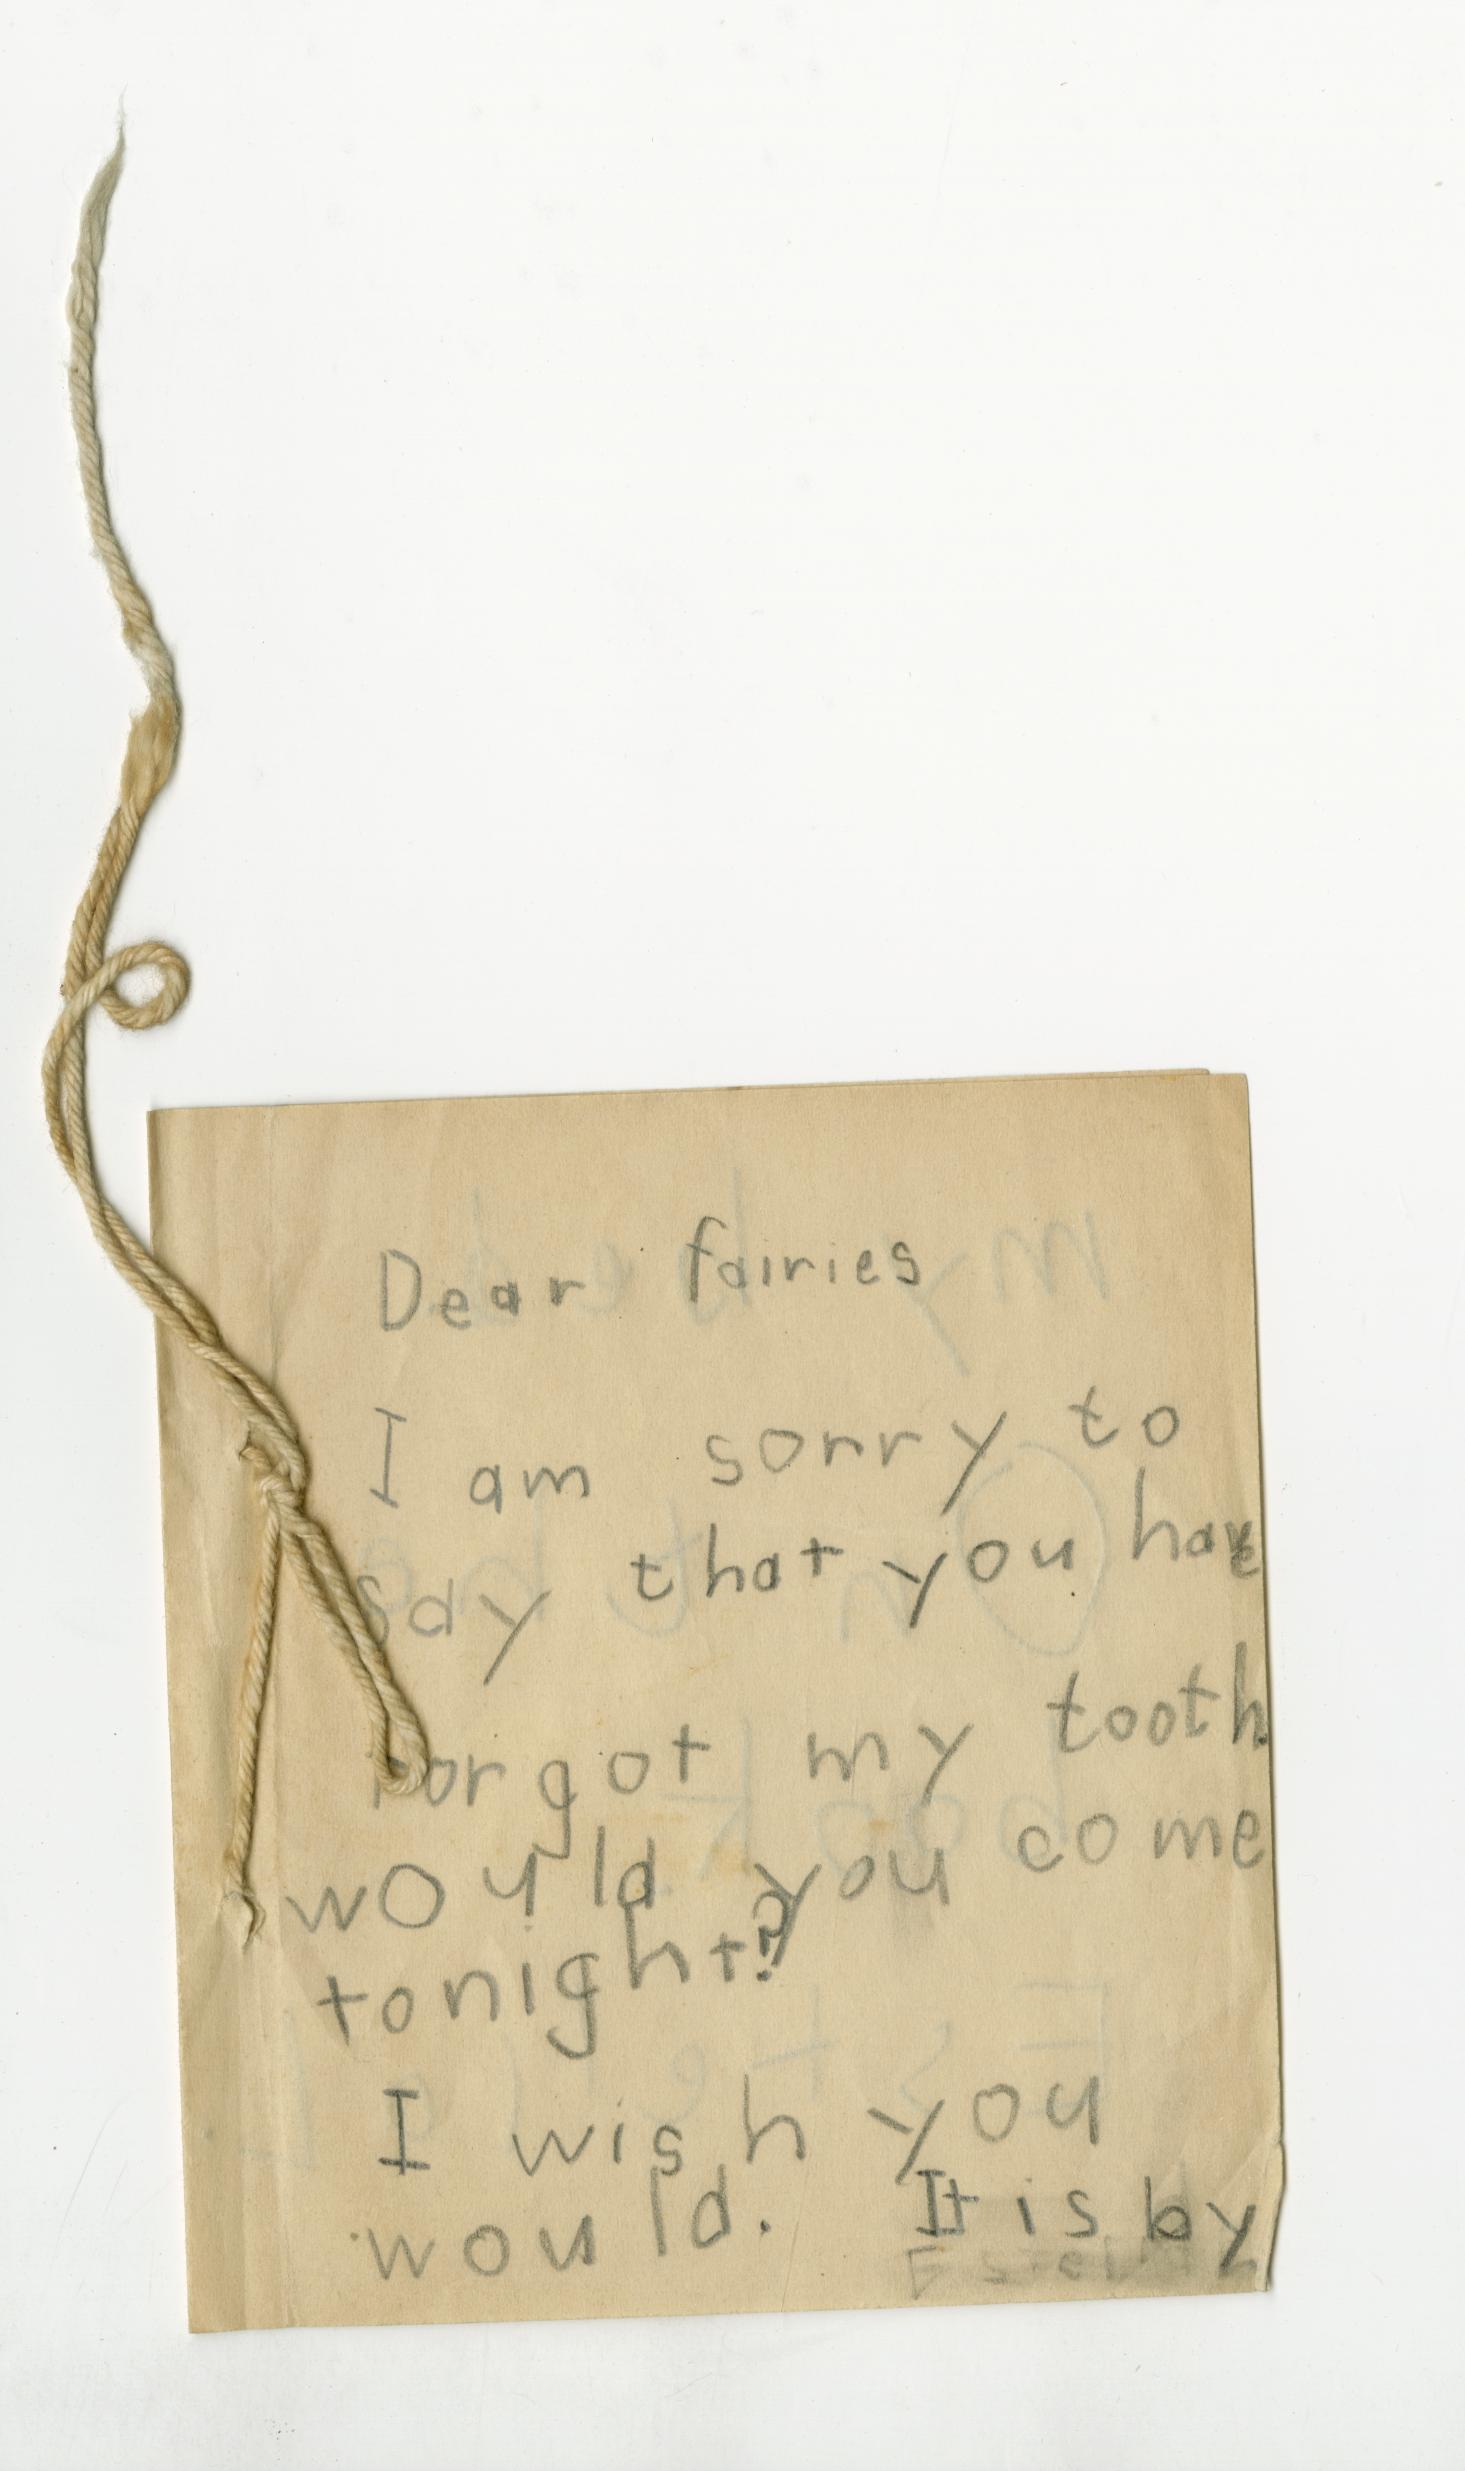 Dear fairies
I am sorry to
say that you have
forgot my tooth
would you come
tonight?
I wish you
would. It is by